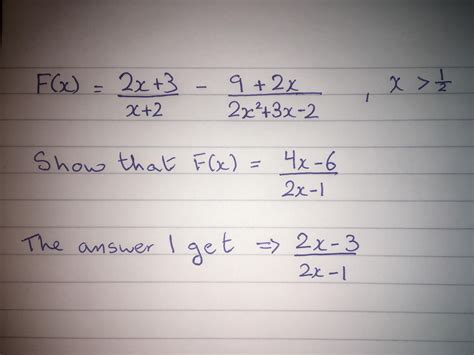 F(x) = (2x+3)/(x+2) - (9+2x)/(2x²+3x-2) , x > 1/2
Show that F(x) = (4x-6)/(2x-1)
The answer I get ⇒ (2x-3)/(2x-1)